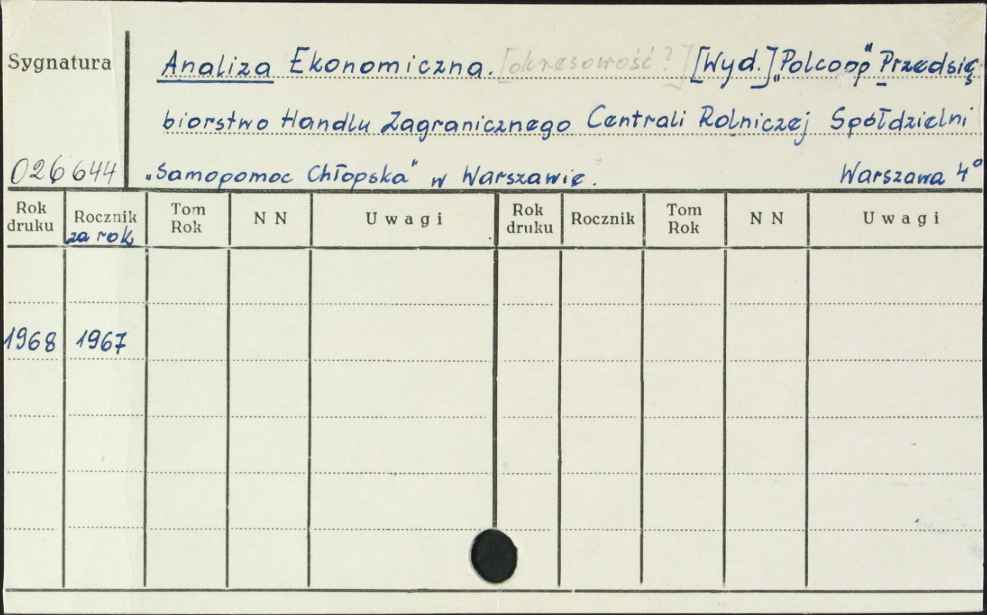 Sygnatura
Analiza Ekonomiczna. [okresowość?] [Wyd.] „Polcoop" Przedsię
biorstwo Handlu Zagranicznego Centrali Rolniczej Spółdzielni
026644 „Samopomoc Chłopska" w Warszawie. Warszawa 4°
Rok druku Rocznik za rok Tom Rok N N Uwagi Rok druku Rocznik Tom Rok N N Uwagi
1968 1967